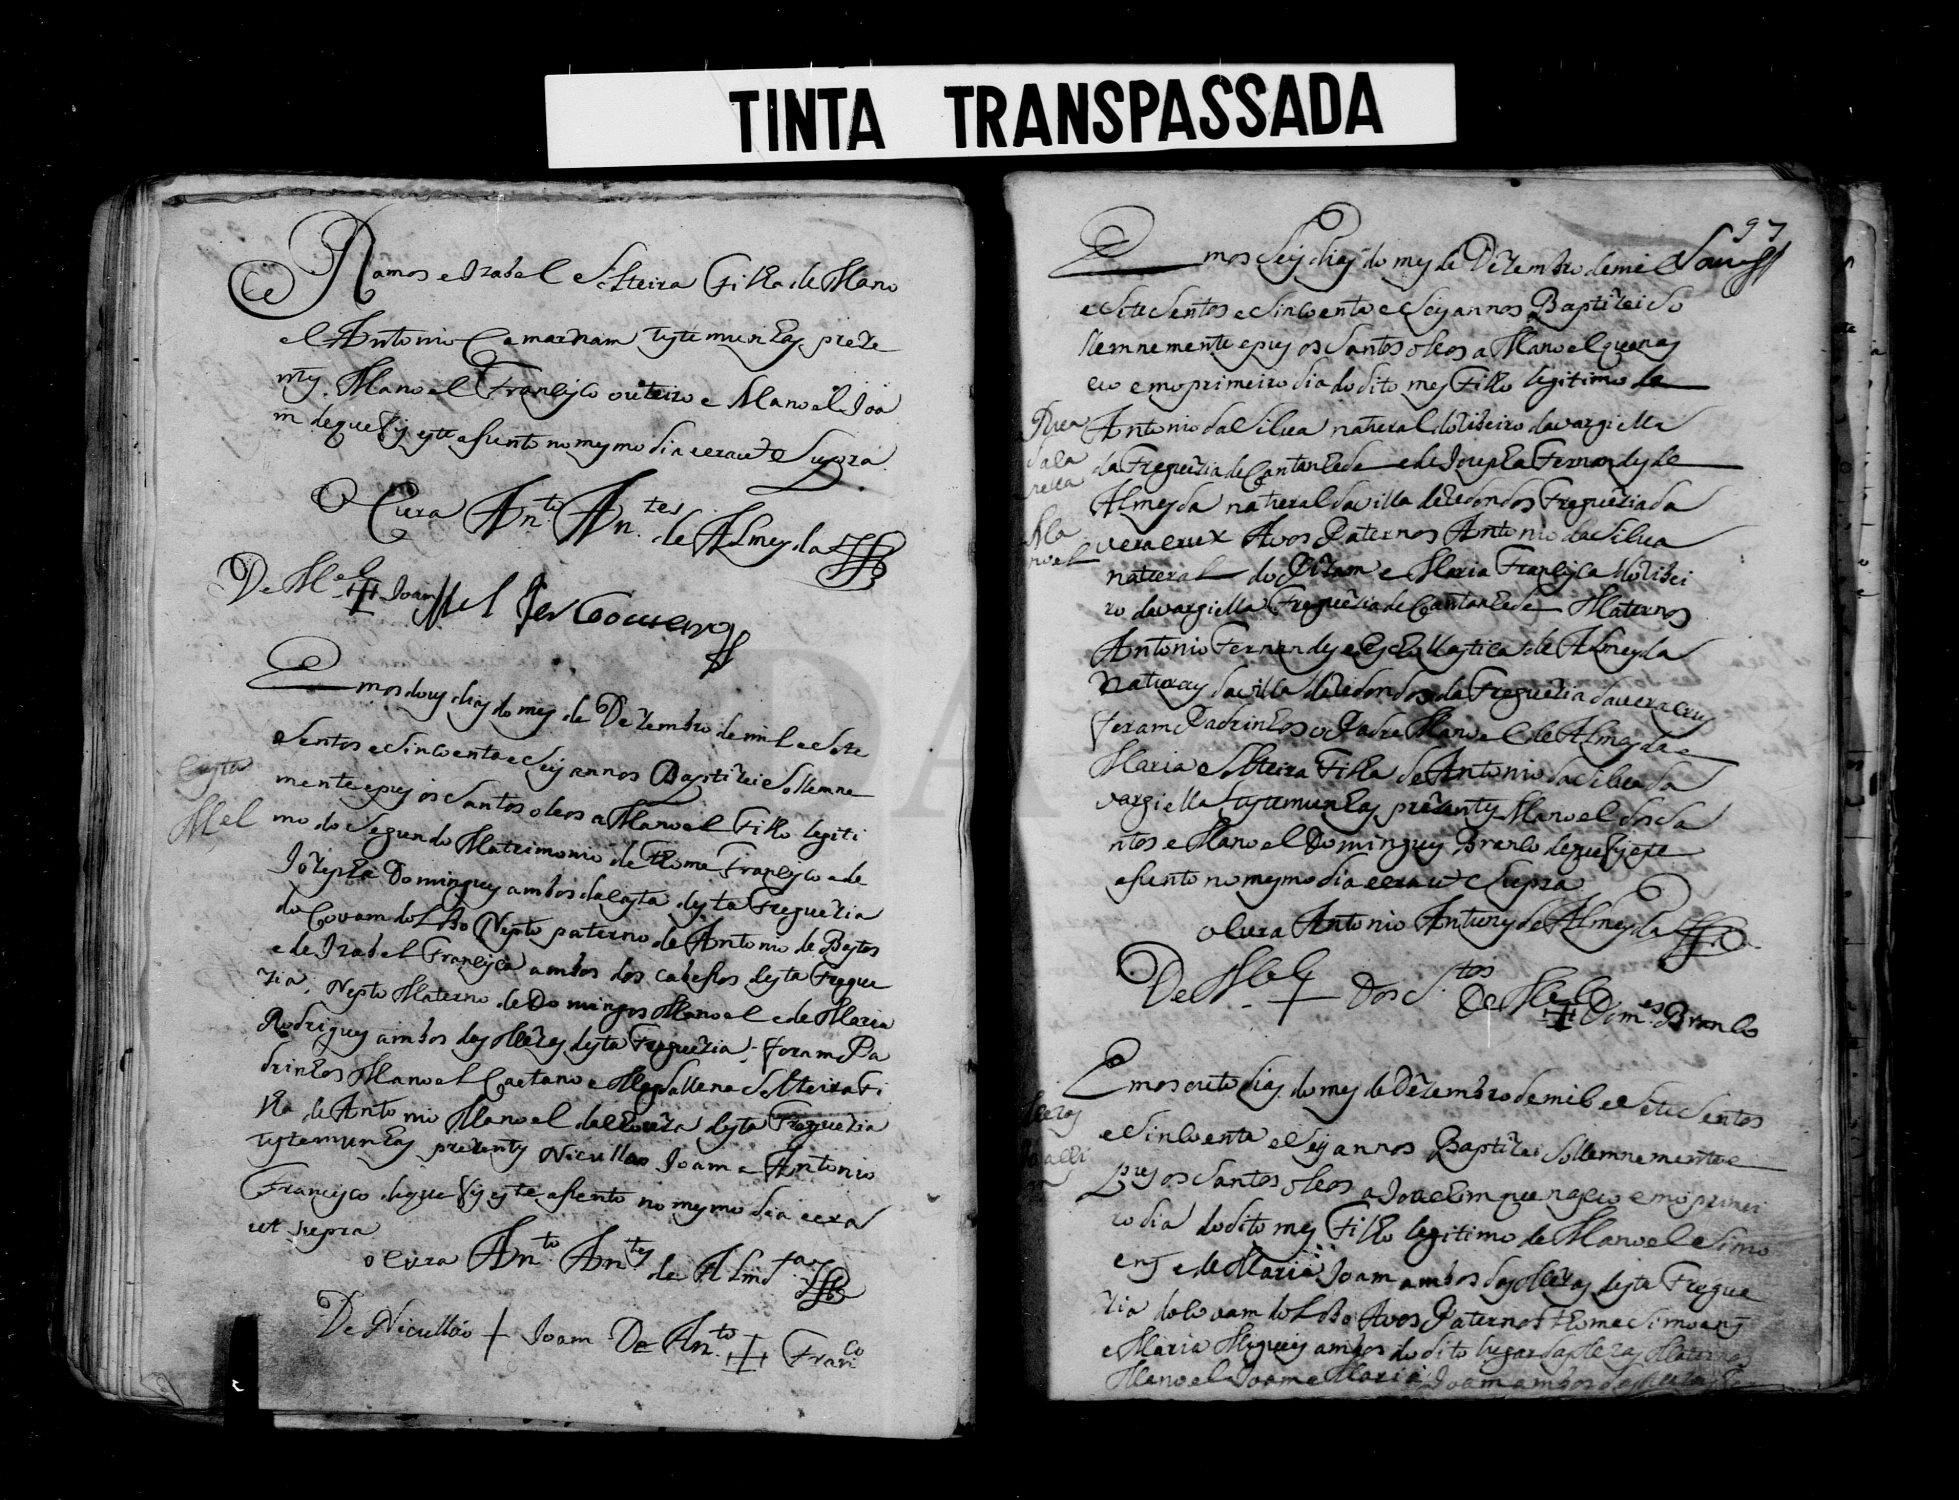 TINTA TRANSPASSADA
Ramos e Izabel Solteira Filha de Mano
el Antonio Camarnam testemunhas preze
ntes Manoel Francisco outeiro e Manoel Joa
m de que fis este asento no mesmo dia e era ut Supra
O Cura Ant.º An.tes de Almeyda
De M.el Joam M.el
Em os dous dias do mes de Dezembro de mil e Sete
Sentos e Sincoenta e Seis annos Baptizei Sollemne
Costa
mente e pus os Santos oleos a Manoel Filho legiti
Mel
mo do Segundo Matrimonio de Thome Francisco e de
Jozepha Domingues ambos da Costa desta Freguezia
do Covam do Lobo Nepto paterno de Antonio de Bastos
e de Izabel Francisca ambos dos cabessos desta Fregue
zia, Nepto Materno de Domingos Manoel e de Maria
Rodrigues ambos das Mezas desta Freguezia, foram Pa
drinhos Manoel Caetano e Magdallena Solteira Fi
lha de Antonio Manoel da desta Freguezia
testemunhas prezentes Nicullao Joam e Antonio
Francisco de que fis este asento no mesmo dia e era
ut supra
o Cura An.to An.tes de Almd.ª
De Nicullao + Joam De An.to Fran.co
97
Em os Seis dias do mes de Dezembro de mil
e Sete Sentos e Sincoento e Seis annos Baptizei So
llemnemente e pus os Santos oleos a Manoel que nas
ceo em o primeiro dia do dito mes Filho legitimo de
Antonio da Silva natural do Ribeiro da vargiella
da Freguezia de Cantanhede e de Josepha Fernandes de
Almeyda natural da villa de Redondos Freguezia da
Ma
noel
vera crux Avos Paternos Antonio da Silva
natural do Pizam e Maria Francisca do Ribei
ro da vargiella Freguezia de Cantanhede Maternos
Antonio Fernandes e Escollastica de Almeyda
Naturais da villa de Redondos da Freguezia da vera Crus
foram Padrinhos o Padre Manoel de Almeyda e
Maria Solteira Filha de Antonio da Silva da
vargiella testemunhas prezentes Manoel dos Sa
ntos e Manoel Domingues Branco de que fis este
asento no mesmo dia e era ut Supra
o Cura Antonio Antunes de Almeyda
De M.el + dos S.tos De M.el Dom.es Branco
Em os outo dias do mes de Dezembro de mil e Sete Sentos
e Sincoenta e Seis annos Baptizei Sollemnemente e
pus os Santos oleos a Joachim que nasceo em o primei
ro dia do dito mes Filho legitimo de Manoel Simo
ens e de Maria Joam ambos das Mezas desta Fregue
zia do Covam do Lobo Avos Paternos Thome Simoens
e Maria Migueis ambos do dito lugar das Mezas Maternos
Manoel Joam e Maria Joam ambos